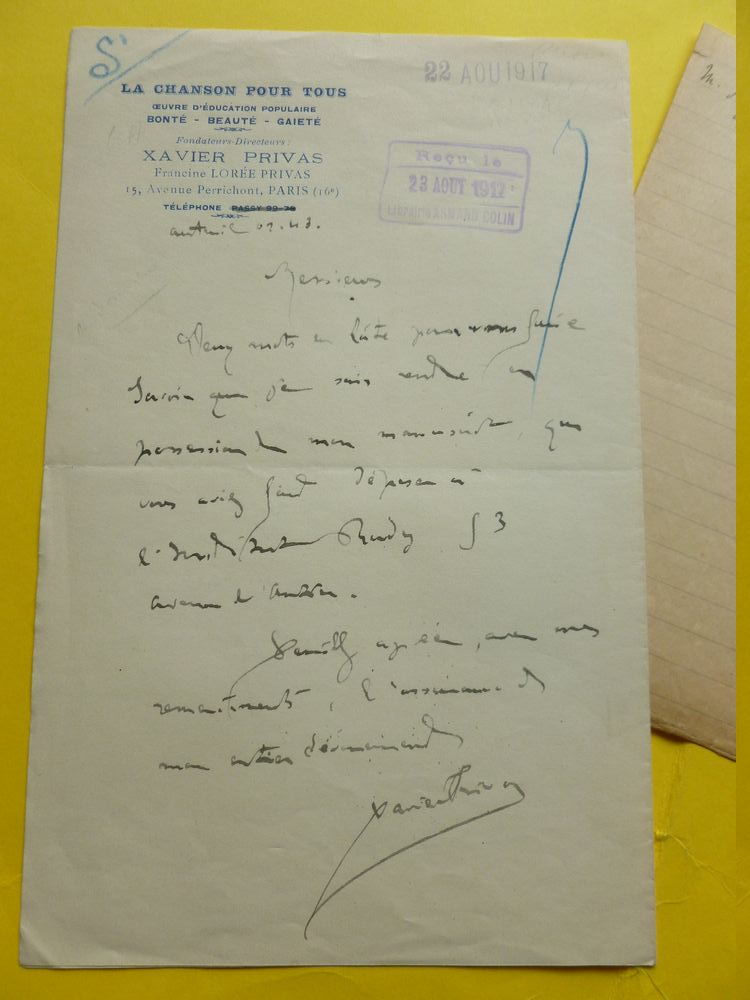 S'
22 AOU 1917
LA CHANSON POUR TOUS
ŒUVRE D'ÉDUCATION POPULAIRE
BONTÉ - BEAUTÉ - GAIETÉ
Fondateurs-Directeurs :
XAVIER PRIVAS
Francine LORÉE PRIVAS
15, Avenue Perrichont, PARIS (16e)
TÉLÉPHONE PASSY 99-76
auteuil 02.43.
Reçu le
23 AOUT 1917
LIBRAIRIE ARMAND COLIN
Messieurs
Deux mots en hâte pour vous faire
savoir que je suis rentré en
possession de mon manuscrit, que
vous aviez fait déposer à
l'Institut Rudy 53
avenue d'Antin.
Veuillez agréer, avec mes
remerciements, l'assurance de
mon entier dévouement
Xavier Privas